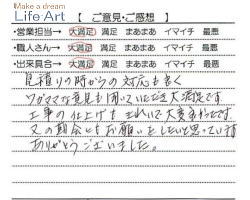 Make a dream
Life Art
【 ご意見・ご感想 】
・営業担当→ 大満足 満足 まあまあ イマイチ 最悪
・職人さん→ 大満足 満足 まあまあ イマイチ 最悪
・出来具合→ 大満足 満足 まあまあ イマイチ 最悪
見積りの時からの対応も良く
ワガママな意見も聞いていただき大満足です。
工事の仕上げもきれいで大変よかったです。
又の機会にもお願いをしたいと思っています
ありがとうございました。